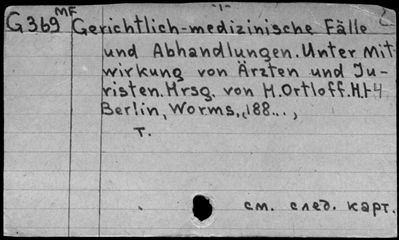 -1-
G369 MF Gerichtlich-medizinische Fälle
und Abhandlungen. Unter Mit-
wirkung von Ärzten und Ju-
risten. Hrsg. von H. Ortloff. H.1-4
Berlin, Worms, 188...,
т.
см. след. карт.